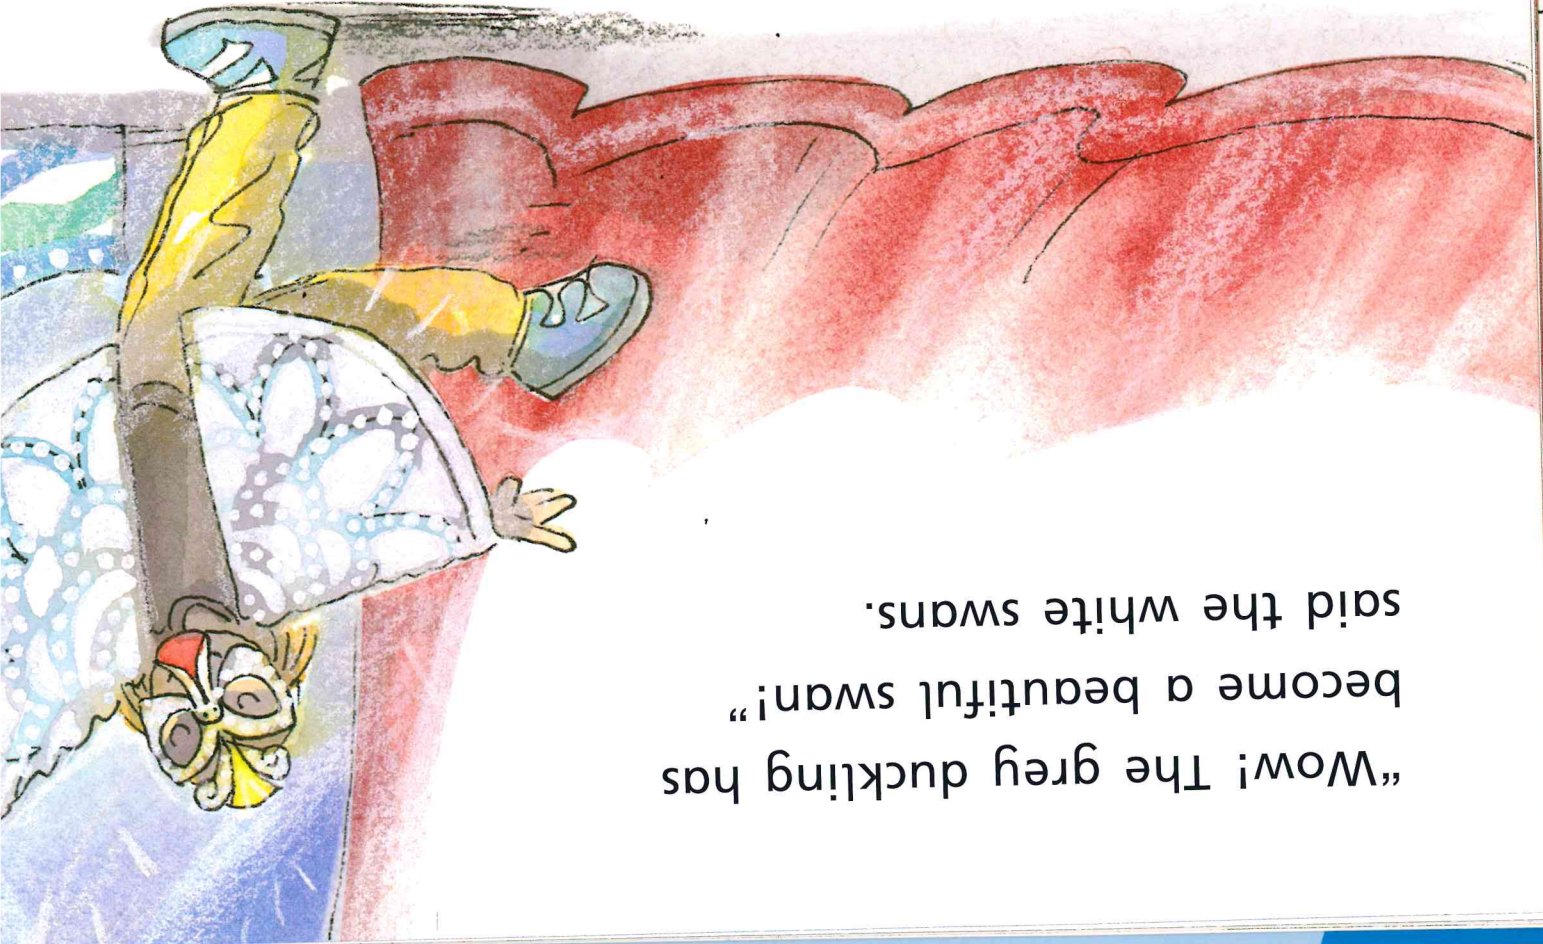 “Wow! The grey duckling has
become a beautiful swan!”
said the white swans.